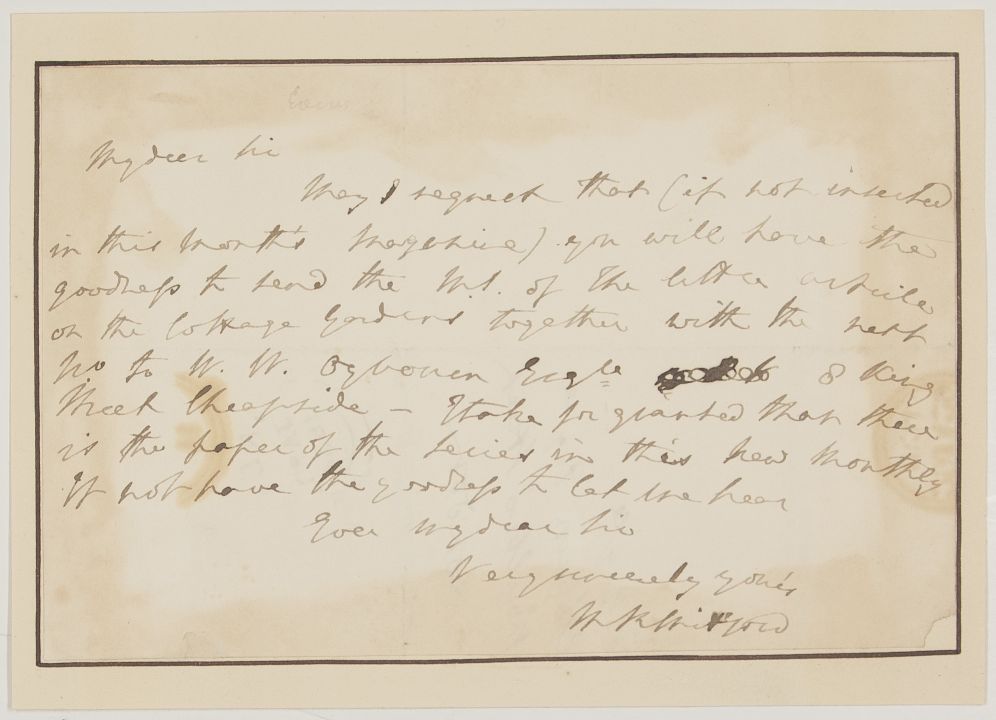 My dear Sir
May I request that (if not inserted
in this Month's Magazine) you will have the
goodness to send the M.S. of the little article
on the Cottage Gardens together with the next
No to W. W. Ogbourn 8 King
Street Cheapside - I take for granted that there
is the paper of the Series in this New Monthly
If not have the goodness to let me hear
Ever my dear Sir
Very sincerely your's
M R Mitford